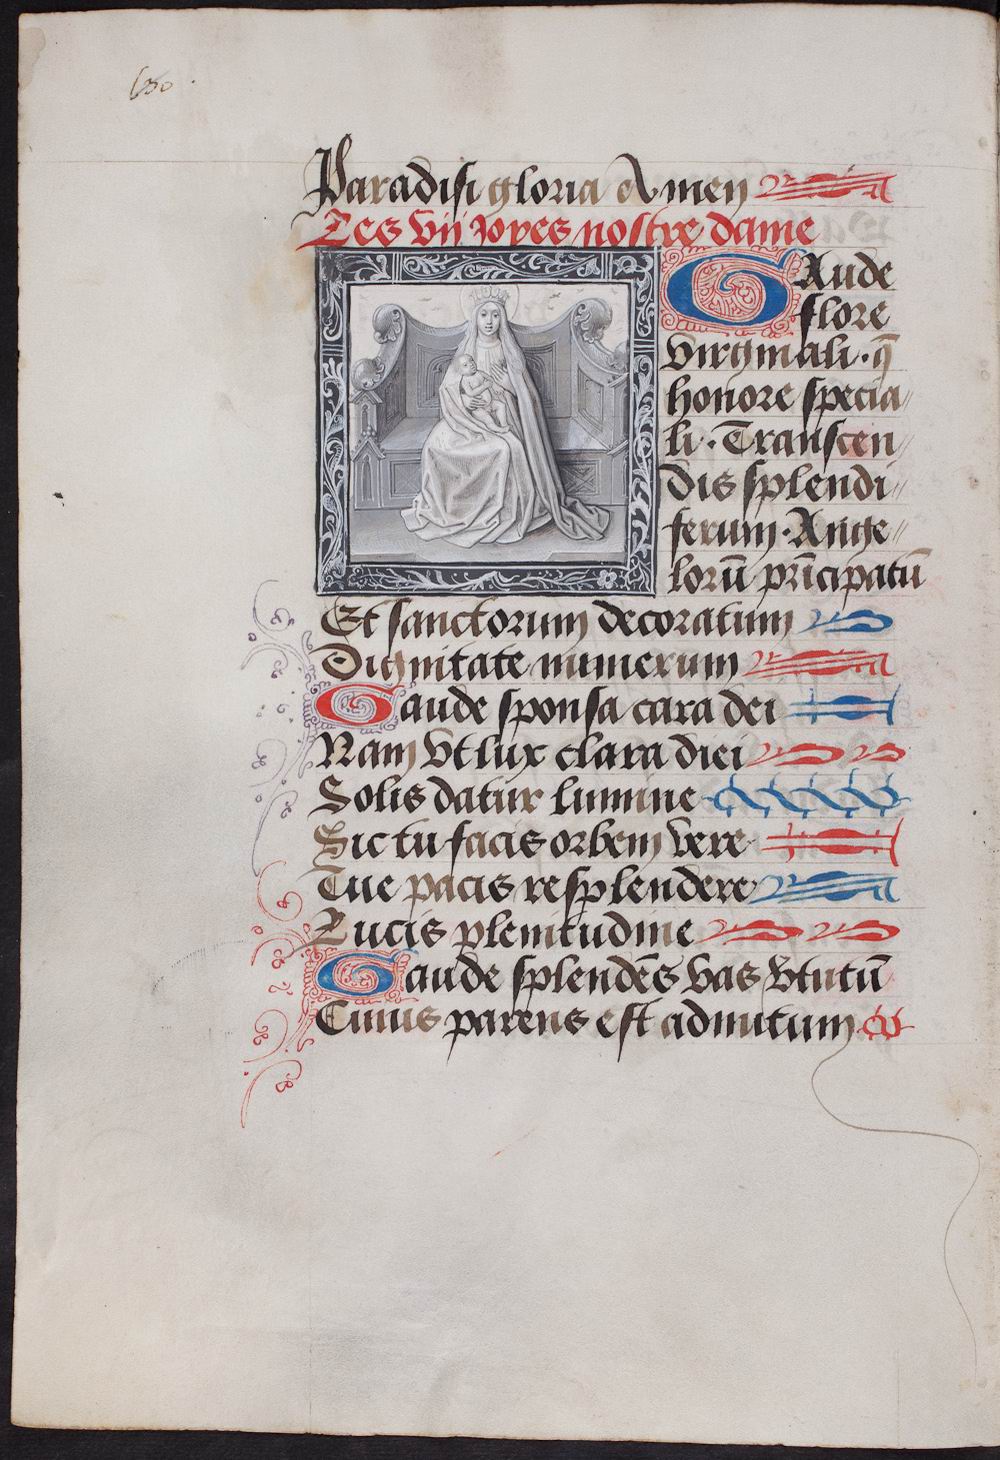 Paradisi gloria Amen
Les vij joyes nostre dame
GAude
flore
virginali · q̄
honore specia//
li · Transcen//
dis splendi//
ferum · Ange//
lorū prīcipatū
Et sanctorum decoratum
Dignitate numerum
Gaude sponsa cara dei
Nam vt lux clara diei
Solis datur lumine
Sic tu facis orbem vere
Tue pacis resplendere
Lucis plenitudine
Gaude splendēs vas vtutū
Cuius parens est ad nutum